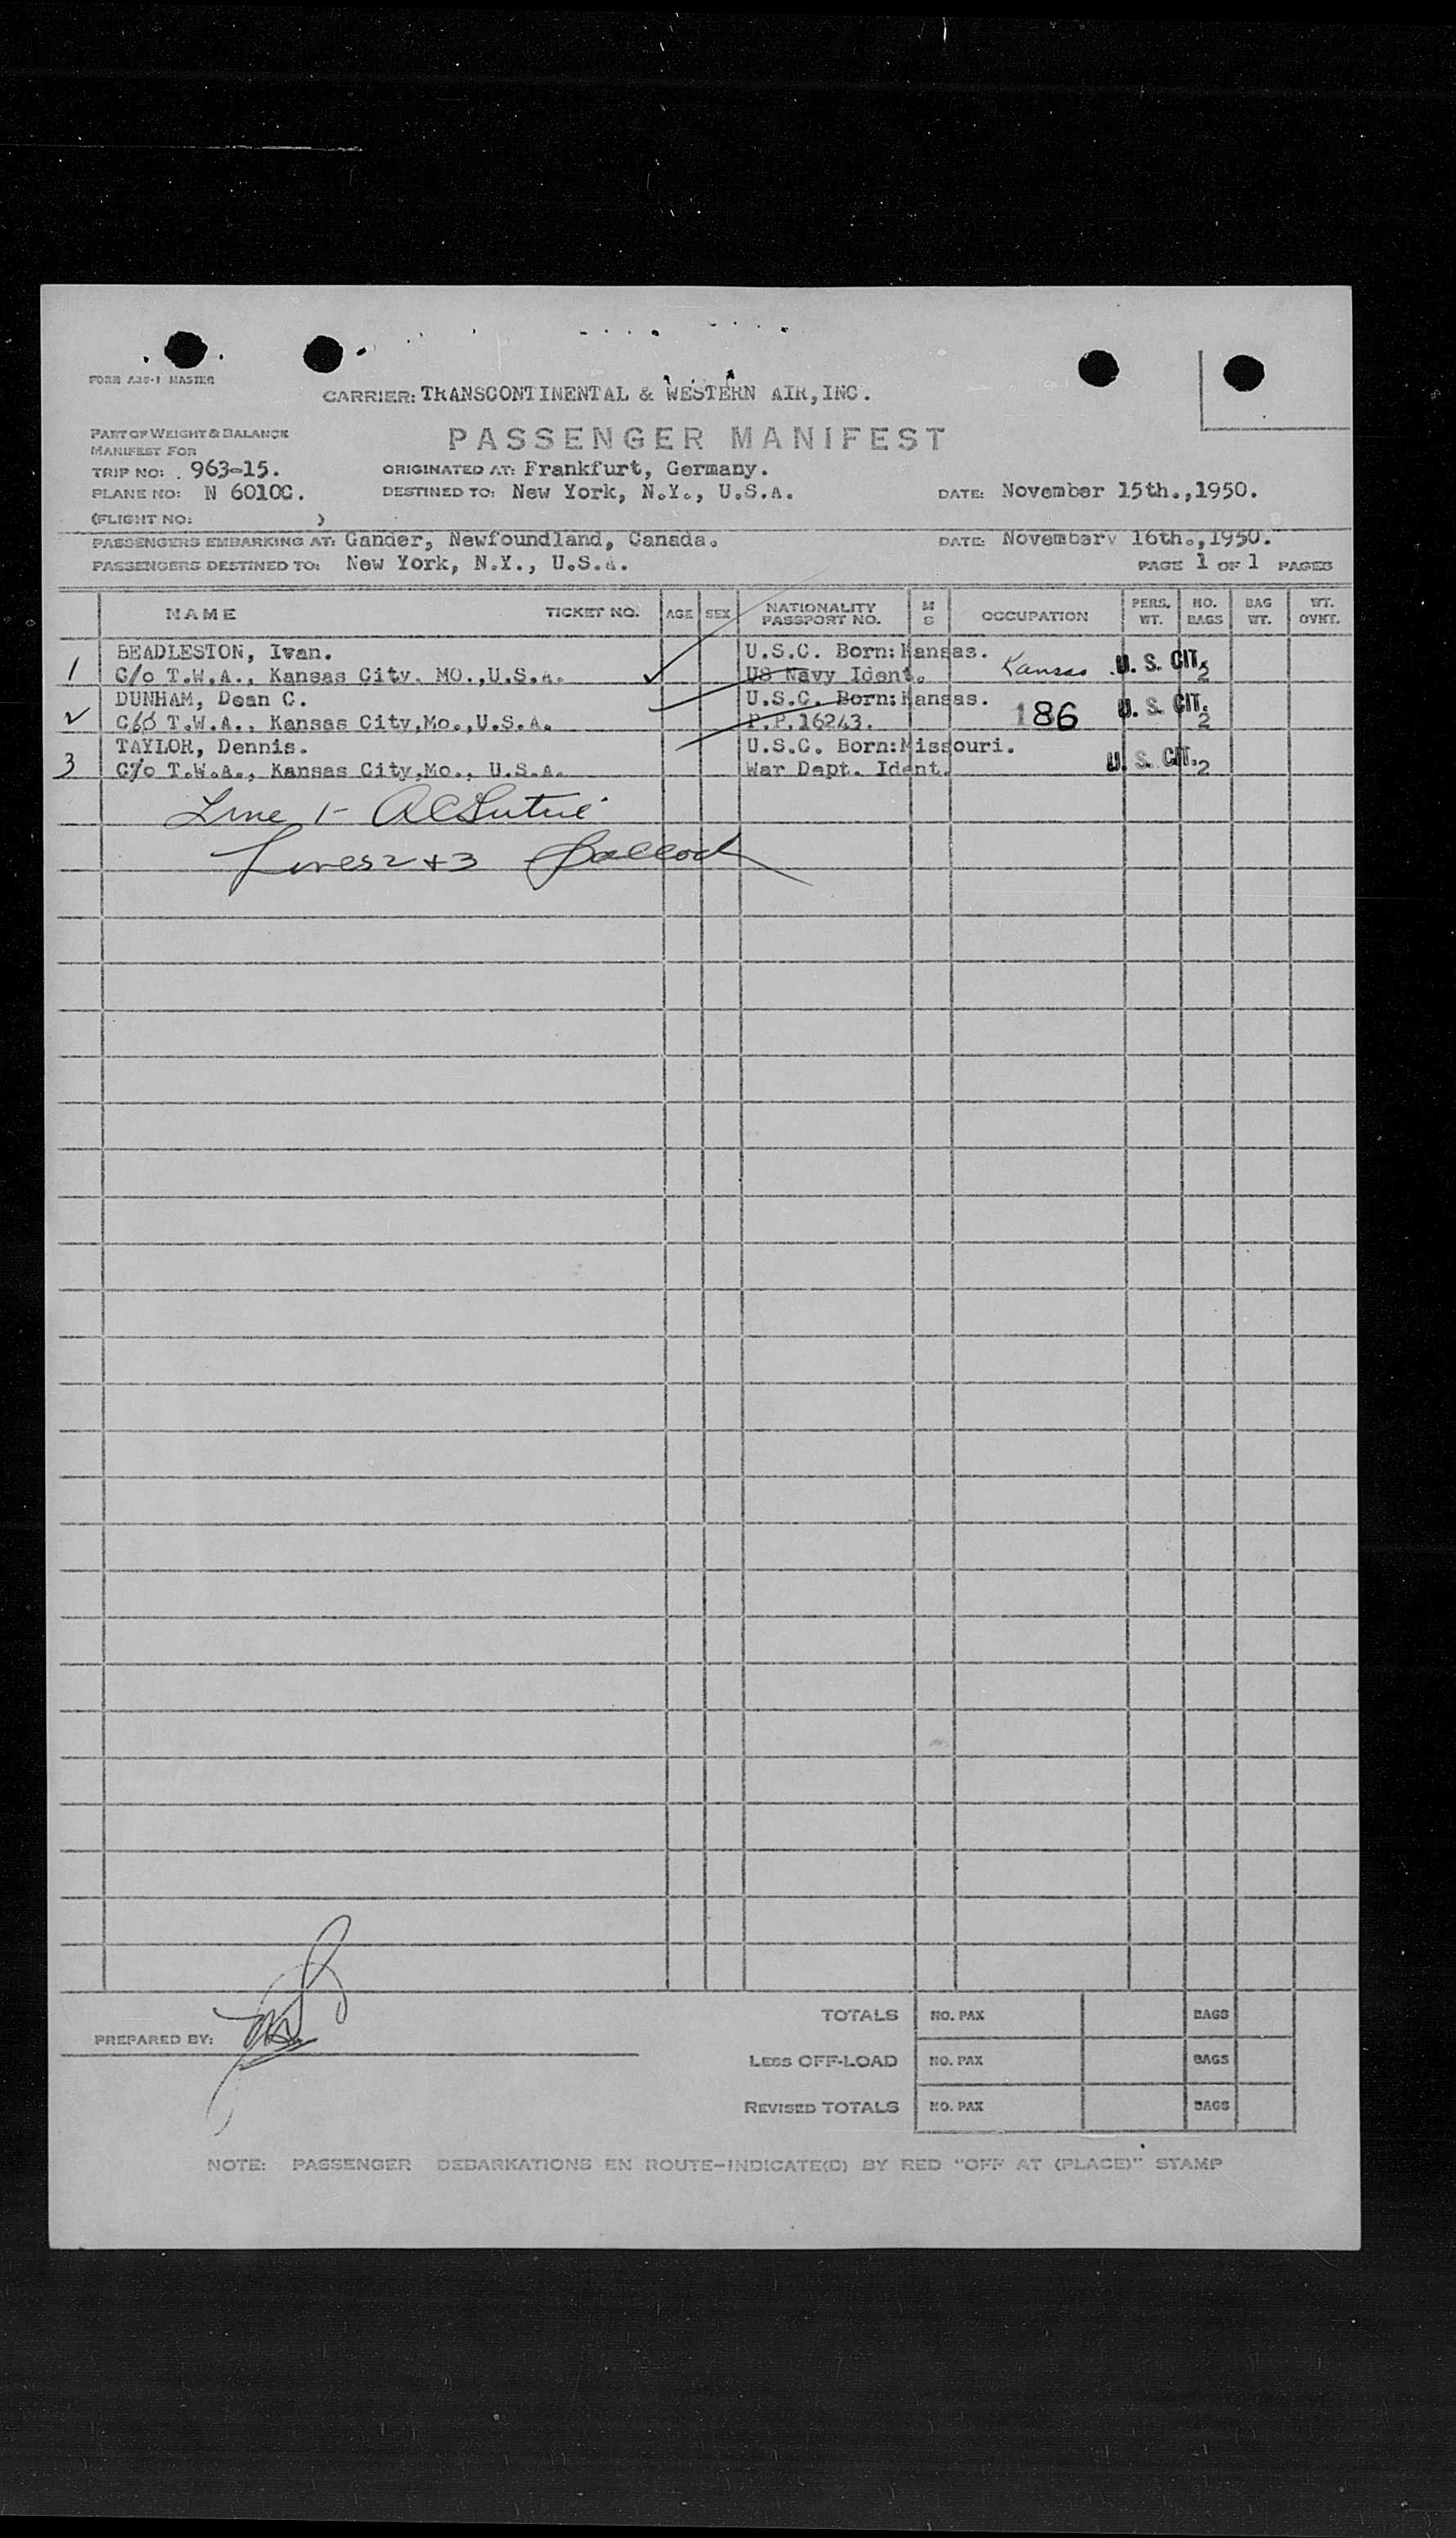 FORM A36-1 MASTER
CARRIER: TRANSCONTINENTAL & WESTERN AIR, INC.
PART OF WEIGHT & BALANCE
MANIFEST FOR
PASSENGER MANIFEST
TRIP NO: 963-15. ORIGINATED AT: Frankfurt, Germany.
PLANE NO: N 6010C. DESTINED TO: New York, N.Y., U.S.A. DATE: November 15th.,1950.
(FLIGHT NO: )
PASSENGERS EMBARKING AT: Gander, Newfoundland, Canada. DATE: Novemberv 16th.,1950.
PASSENGERS DESTINED TO: New York, N.Y., U.S.A. PAGE 1 OF 1 PAGES
NAME TICKET NO. AGE SEX NATIONALITY PASSPORT NO. M S OCCUPATION PERS. WT. NO. BAGS BAG WT. WT. OVHT.
BEADLESTON, Ivan. U.S.C. Born:Kansas.
1 C/o T.W.A., Kansas City. MO.,U.S.A. US Navy Ident. Kansas U. S. CIT. 2
DUNHAM, Dean C. U.S.C. Born:Kansas.
2 C/o T.W.A., Kansas City,Mo.,U.S.A. P.P.16243. 186 U. S. CIT. 2
TAYLOR, Dennis. U.S.C. Born:Missouri.
3 C/o T.W.A., Kansas City,Mo., U.S.A. War Dept. Ident. U. S. CIT. 2
Line 1-
Lines 2 + 3
TOTALS NO. PAX BAGS
PREPARED BY:
LESS OFF-LOAD NO. PAX BAGS
REVISED TOTALS NO. PAX BAGS
NOTE: PASSENGER DEBARKATIONS EN ROUTE-INDICATE(D) BY RED "OFF AT (PLACE)" STAMP